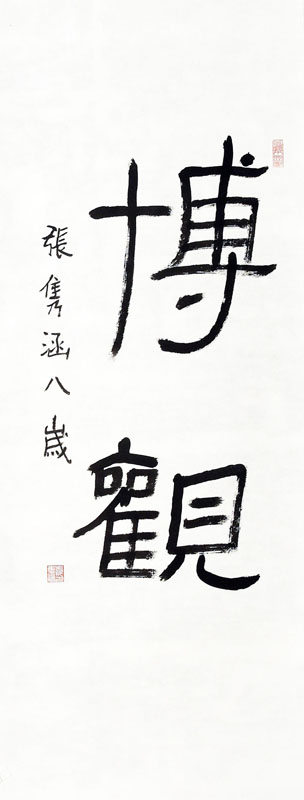 博觀
張雋涵八歲